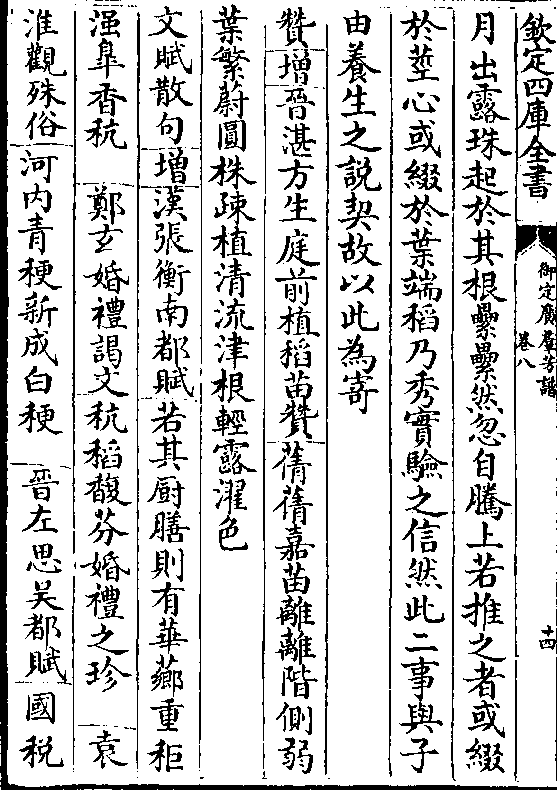 欽定四庫全書
御定廣羣芳譜
卷八
十四
月出露珠起於其根纍纍然忽自騰上若推之者或綴
於莖心或綴於葉端稻乃秀實驗之信然此二事與子
由養生之說契故以此為寄
贊增晉湛方生庭前植稻苗贊蒨蒨嘉苗離離階側弱
葉繁蔚圓株疎植清流津根輕露濯色
文賦散句增漢張衡南都賦若其厨膳則有華薌重秬
滍臯香秔 鄭玄婚禮謁文秔稻馥芬婚禮之珍 袁
淮觀殊俗河内青稉新成白稉 晉左思吴都賦國税